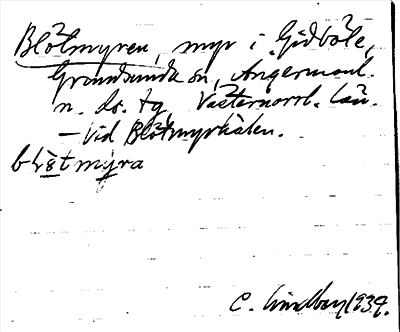 Blötmyren, myr i Gidböle,
Grundsunda sn, Ångermanl.
n. ds. tg, Västernorrl. län.
– Vid Blötmyrkälen.
blötmyra
C. Lindberg 1939.